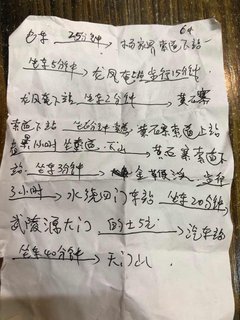 64
坐车 25分钟 杨家界索道下站
坐车5分钟 龙凤庵 步行15分钟
龙凤庵下站 坐车2分钟 黄石寨
索道下站 坐 分钟 黄石寨索道上站
小时 坐索道 下山 黄石寨索道下
站 坐车3分钟 金鞭溪 步行
3小时 水绕四门车站 坐车20分钟
武陵源大门 的士5元 汽车站
坐车40分钟 天门山.